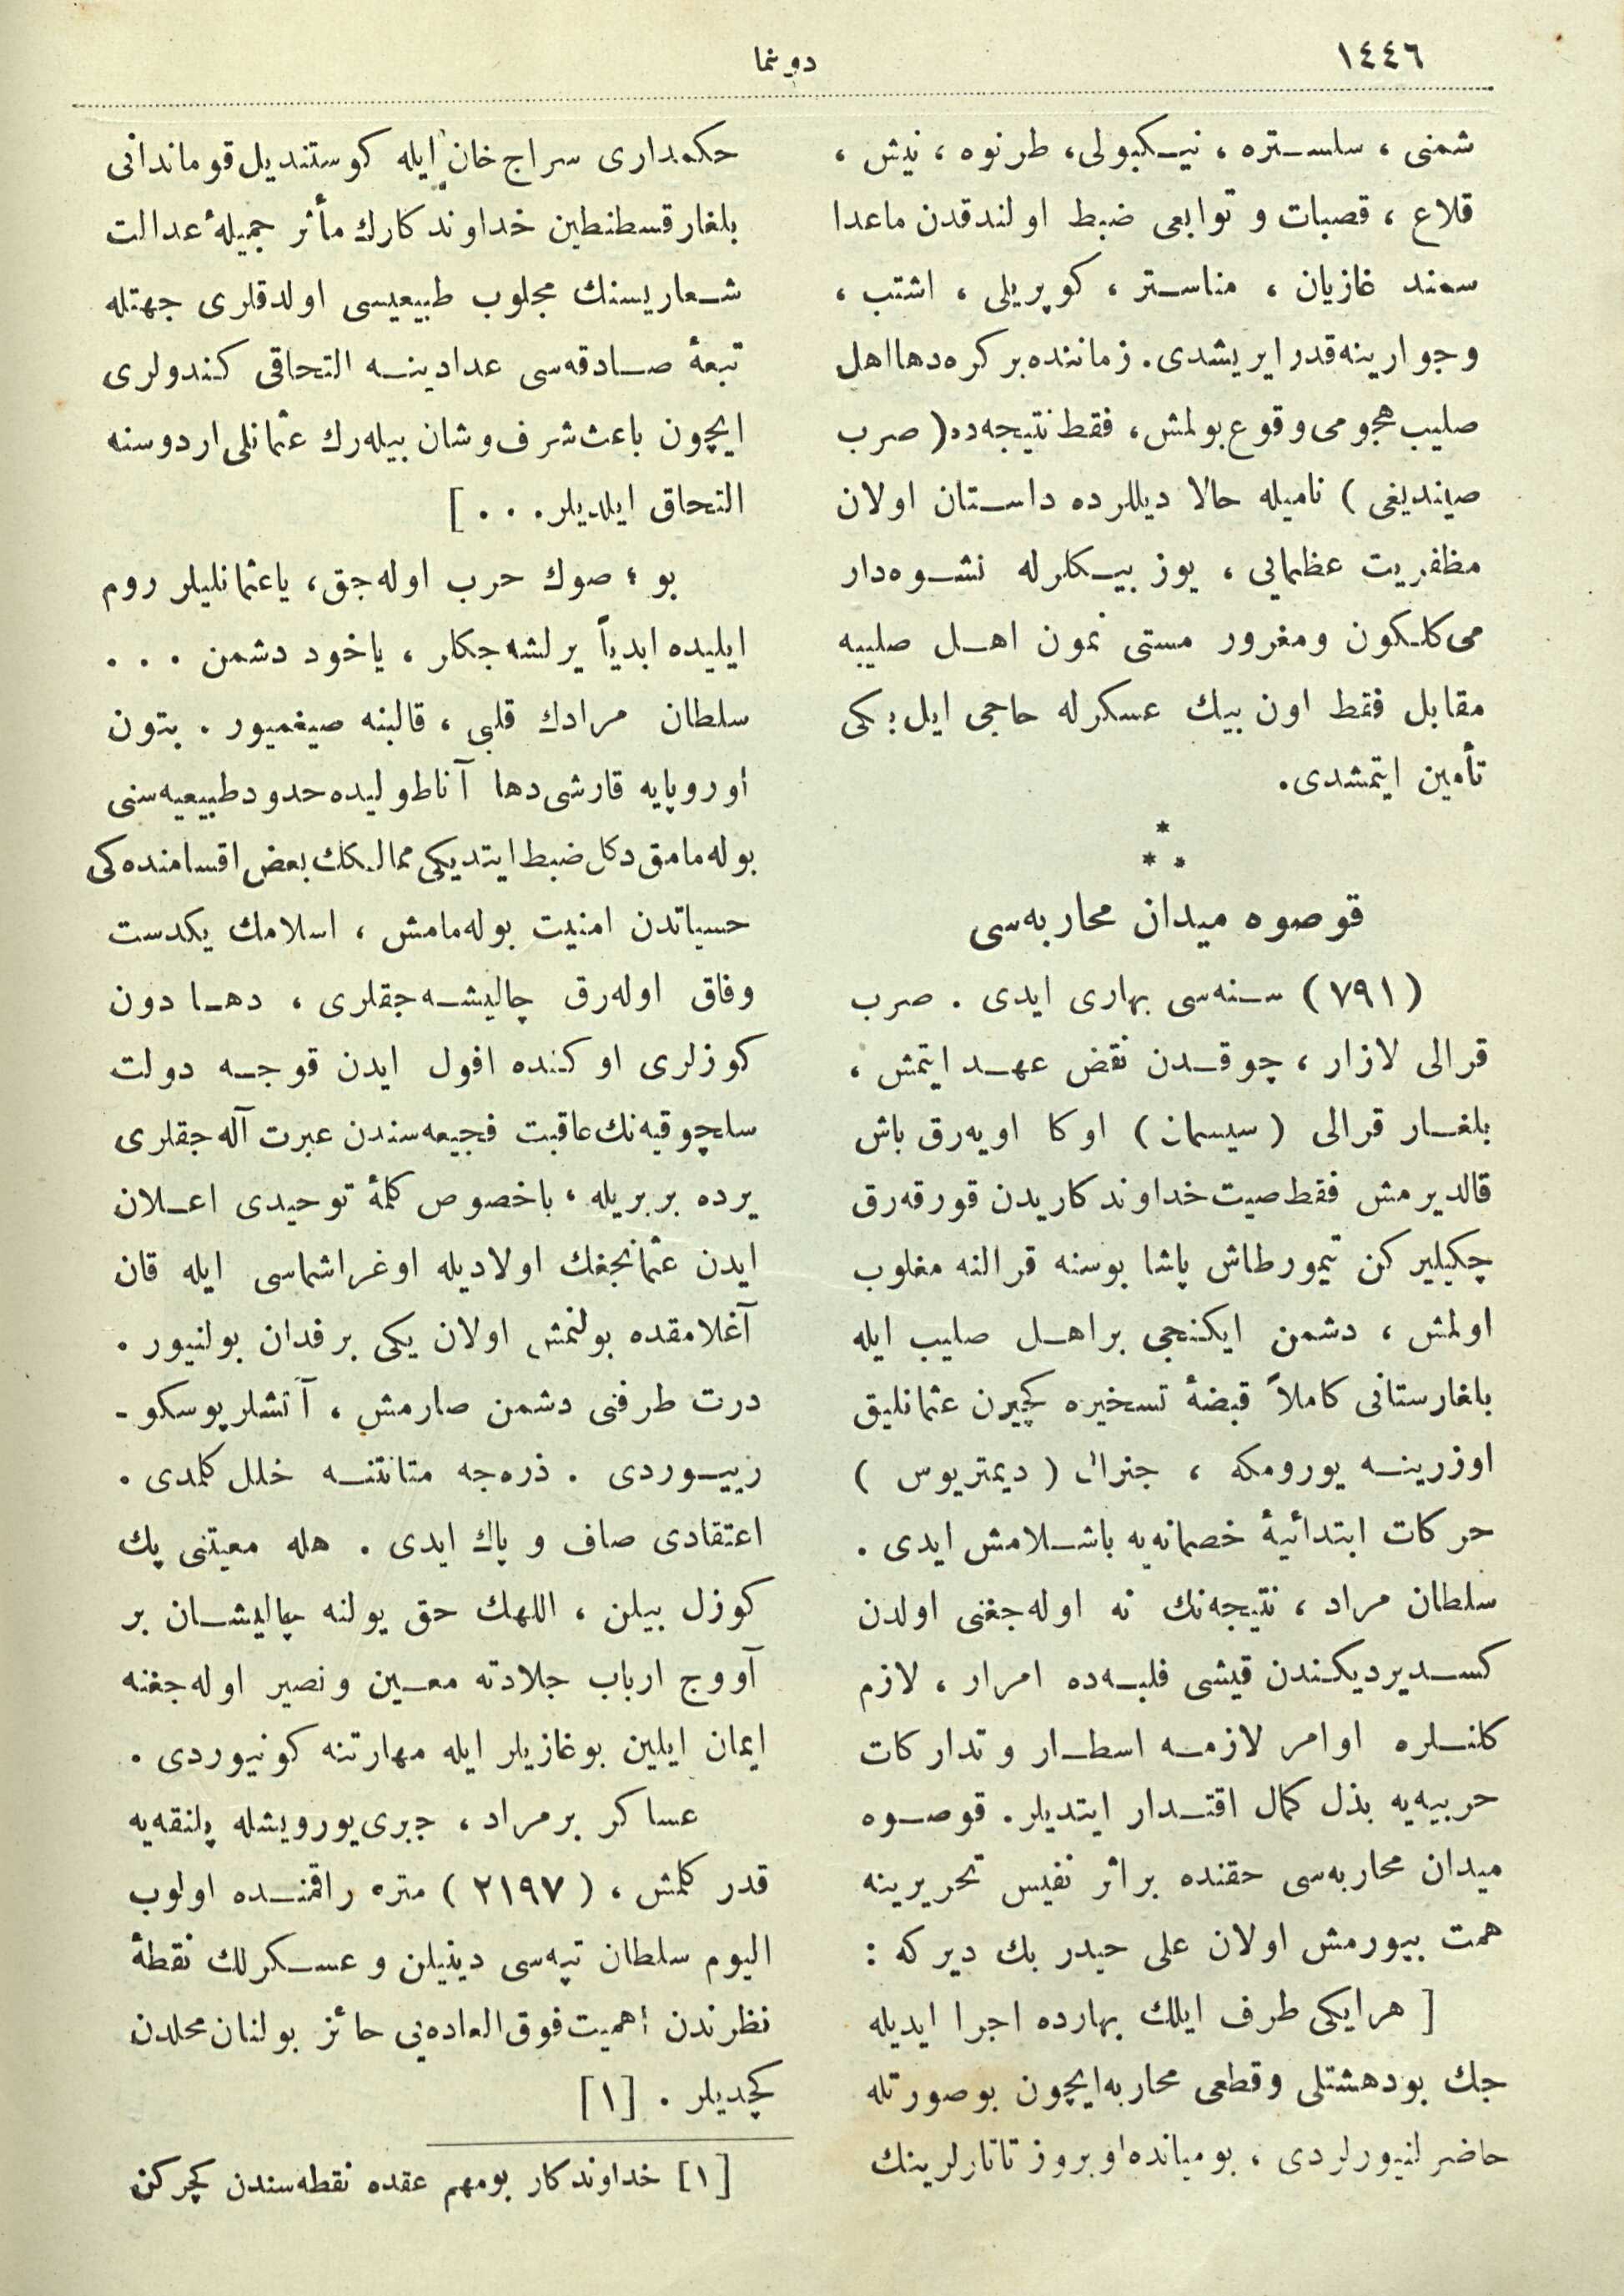 ١٤٤٦
دونما
شمنی ، سلستره ، نیکبولی، طرنوه ، نیش ،
قلاع ، قصبات و توابعی ضبط اولندقدن ماعدا
سمند غازیان ، مناستر ، کوپریلی ، اشتب ،
وجوارینه قدر ایریشدی. زماننده برکره دها اهل
صلیب هجومی وقوع بولمش، فقط نتیجه ده ( صرب
صیندیغی ) نامیله حالا دیللرده داستان اولان
مظفریت عظمایی ، یوز بیکلرله نشوه دار
می کلکون ومغرور مستی نمون اهل صلیبه
مقابل فقط اون بیك عسکرله حاجی ایل بکی
تأمین ایتمشدی.
*
* *
قوصوه میدان محاربه سی
(٧٩١) سنه سی بهاری ایدی . صرب
قرالی لازار ، چوقدن نقض عهد ایتمش ،
بلغار قرالی (سیسمان) اوکا اویه رق باش
قالدیرمش فقط صیت خداوندکاریدن قورقه رق
چکیلیرکن تیمورطاش پاشا بوسنه قرالنه مغلوب
اولمش ، دشمن ایکنجی بر اهل صلیب ایله
بلغارستانی کاملاً قبضهٔ تسخیره کچیرن عثمانلیق
اوزرینه یورومکه ، جنرال (دیمتریوس)
حرکات ابتدائیهٔ خصمانه یه باشلامش ایدی .
سلطان مراد ، نتیجه نك نه اوله جغنی اولدن
کسدیردیکندن قیشی فلبه ده امرار ، لازم
کلنلره اوامر لازمه اسطار و تدارکات
حربیه یه بذل کمال اقتدار ایتدیلر. قوصوه
میدان محاربه سی حقنده بر اثر نفیس تحریرینه
همت بیورمش اولان علی حیدر بك دیرکه :
[ هر ایکی طرف ایلك بهارده اجرا ایدیله
جك بو دهشتلی وقطعی محاربه ایچون بوصورتله
حاضرلنیورلردی ، بومیانده اوبروز تاتارلرینك
حکمداری سراج خان ایله کوستندیل قوماندانی
بلغار قسطنطین خداوندکارك مأثر جمیلهٔ عدالت
شعاریسنك مجلوب طبیعیسی اولدقلری جهتله
تبعهٔ صادقه سی عدادینه التحاقی کندولری
ایچون باعث شرف وشان بیله رك عثمانلی اردوسنه
التحاق ایلدیلر. . . ]
بو ؛ صوك حرب اوله جق، یا عثمانلیلر روم
ایلیده ابدیاً یرلشه جکلر ، یاخود دشمن . . .
سلطان مرادك قلبی ، قالبنه صیغمیور . بتون
اوروپایه قارشی دها آناطولیده حدود طبیعیه سنی
بوله مامق دکل ضبط ایتدیکی ممالکك بعض اقسامنده کی
حسیاتدن امنیت بوله مامش ، اسلامك یکدست
وفاق اوله رق چالیشه جقلری ، دها دون
کوزلری اوکنده افول ایدن قوجه دولت
سلچوقیه نك عاقبت فجیعه سندن عبرت آله جقلری
یرده بربریله ، باخصوص کلمهٔ توحیدی اعلان
ایدن عثمانجغك اولادیله اوغراشماسی ایله قان
آغلامقده بولنمش اولان یکی برفدان بولنیور .
درت طرفنی دشمن صارمش ، آتشلر پوسکو-
رییوردی . ذره جه متانتنه خلل کلمدی .
اعتقادی صاف و پاك ایدی . هله معیتنی پك
کوزل بیلن ، اللهك حق یولنه چالیشان بر
آووج ارباب جلادته معین ونصیر اوله جغنه
ایمان ایلین بوغازیلر ایله مهارتنه کونیوردی .
عساکر برمراد ، جبری یورویشله پلنقه یه
قدر کلمش ، (٢١٩٧) متره راقمنده اولوب
الیوم سلطان تپه سی دینیلن و عسکرلك نقطهٔ
نظرندن اهمیت فوق العاده یی حائز بولنان محلدن
کچدیلر . [١]
[١] خداوندکار بومهم عقده نقطه سندن کچرکن